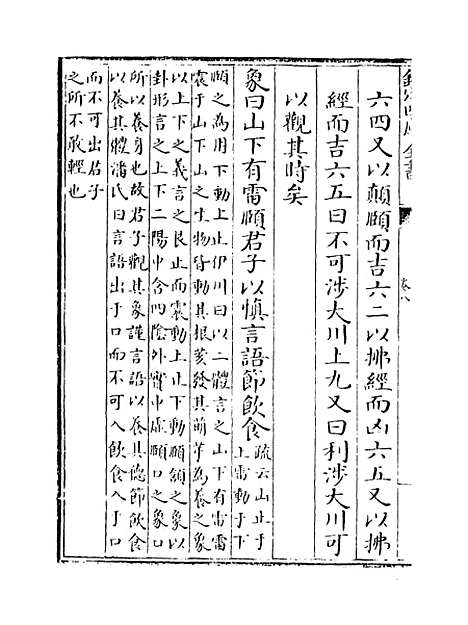 欽定四庫全書
卷八
六四又以顛頤而吉六二以拂經而凶六五又以拂
經而吉六五曰不可涉大川上九又曰利涉大川可
以觀其時矣
象曰山下有雷頤君子以慎言語節飲食
疏云山止于
上雷動于下
頤之為用下動上止伊川曰以二體言之山下有雷雷
震于山下山之生物皆動其根荄發其萌芽為養之象
以上下之義言之艮止而震動上止下動頤頷之象以
卦形言之上下二陽中含四陰外實中虛頤口之象口
所以養身也故君子觀其象謹言語以養其德節飲食
以養其體潘氏曰言語出于口而不可入飲食入于口
而不可出君子
之所不敢輕也